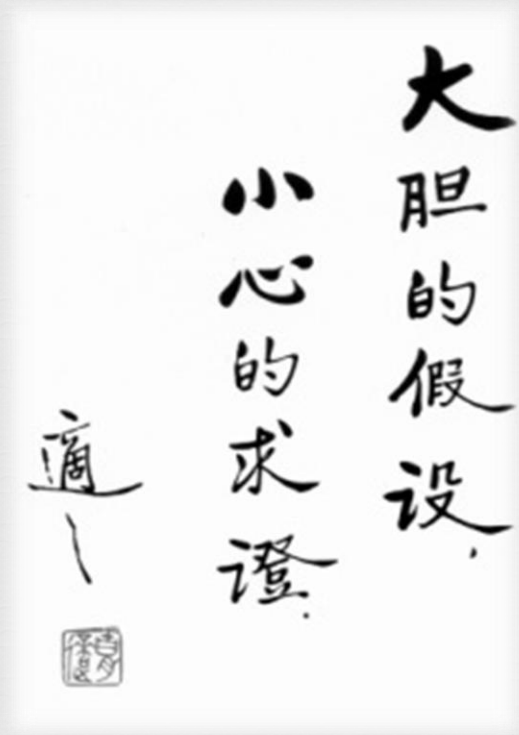 大胆的假设，
小心的求證.
適